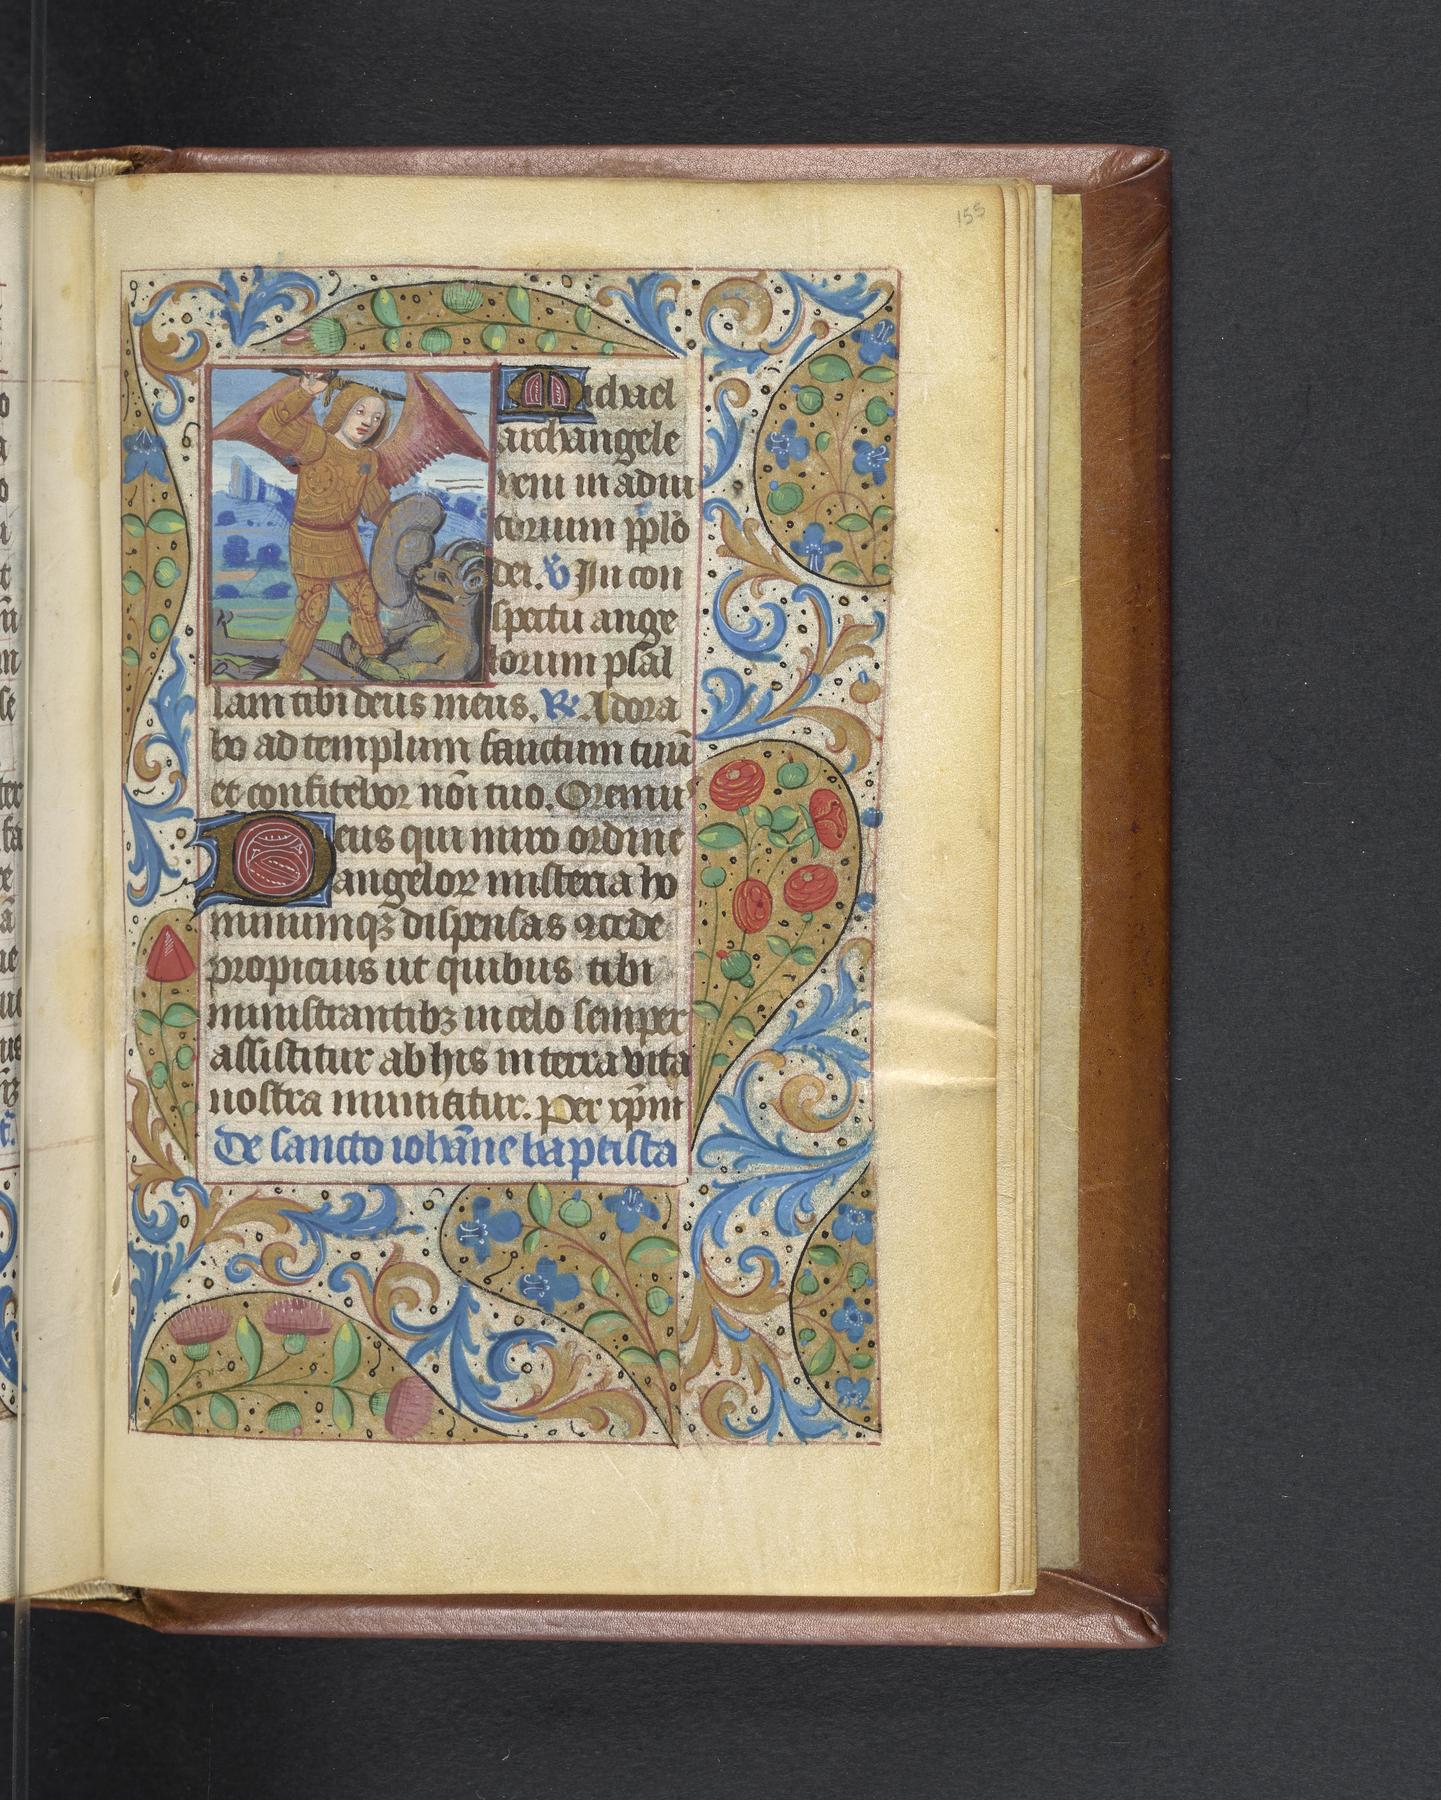 155
Michael
archangele
veni in adiu
torium pplō
dei. ℣ In con
spectu ange
lorum psal
lam tibi deus meus. ℟. Adora
bo ad templum sanctum tuū
et confitebor nōi tuo. Oremus
Deus qui miro ordine
angeloꝝ misteria ho
minumqꝫ dispensas ꝯcede
propicius ut quibus tibi
ministrantibꝫ in celo semper
assistitur ab his in terra vita
nostra muniatur. Per xp̄m
De sancto ioha̅ne baptista